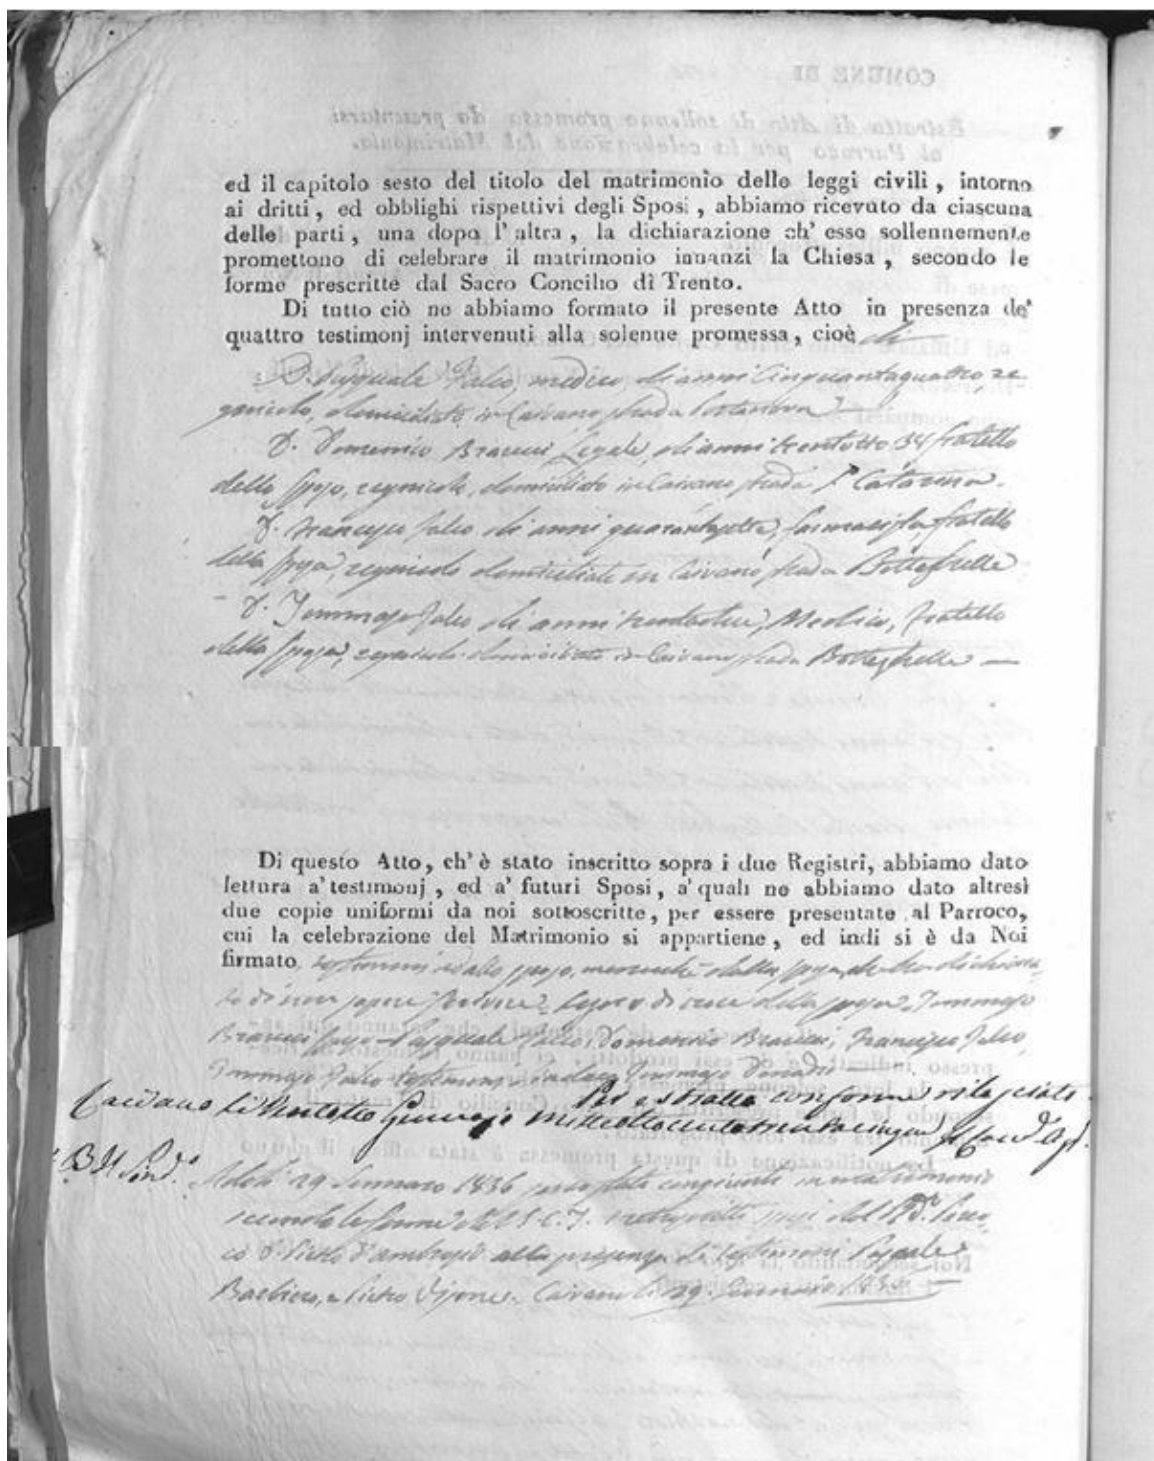 ed il capitolo sesto del titolo del matrimonio delle leggi civili, intorno
ai dritti, ed obblighi rispettivi degli Sposi, abbiamo ricevuto da ciascuna
delle parti, una dopo l'altra, la dichiarazione ch'esse sollennemente
promettono di celebrare il matrimonio innanzi la Chiesa, secondo le
forme prescritte dal Sacro Concilio di Trento.
Di tutto ciò ne abbiamo formato il presente Atto in presenza de'
quattro testimonj intervenuti alla solenne promessa, cioè di
D. Pasquale Falco, medico, di anni Cinquantaquattro, re
gnicolo, domiciliato in Caivano strada
D. Domenico Braucci Legale, di anni trentotto 34 fratello
dello sposo, regnicolo, domiciliato in Caivano strada S. Catarina.
D. Francesco Falco di anni quarantasette, farmacista, fratello
della sposa, regnicolo domiciliato in Caivano strada Botteghelle
D. Tommaso Falco di anni Medico, fratello
della sposa, regnicolo domiciliato in Caivano strada Botteghelle
Di questo Atto, ch'è stato inscritto sopra i due Registri, abbiamo dato
lettura a'testimonj, ed a'futuri Sposi, a'quali ne abbiamo dato altresì
due copie uniformi da noi sottoscritte, per essere presentate al Parroco,
cui la celebrazione del Matrimonio si appartiene, ed indi si è da Noi
firmato, testimoni ed allo sposo, della sposa, che ha dichiara
to di non sapere scrivere Segno di croce della sposa Tommaso
Braucci sposo Pasquale Falco, Domenico Braucci, Francesco Falco,
Tommaso Falco testimoni Sindaco Tommaso
Per estratto conforme rilasciato
Caivano li Ventotto Gennajo milleottocentotrentacinque
Il Sind.
29 Gennaro 1836 congiunti in matrimonio
secondo le forme del S. C. T. sposi dal R. Parro
co D. Pietro d'Ambrosio alla presenza de' testimoni Pasquale
Barbiero, e Pietro Caivano li 29 Gennaio